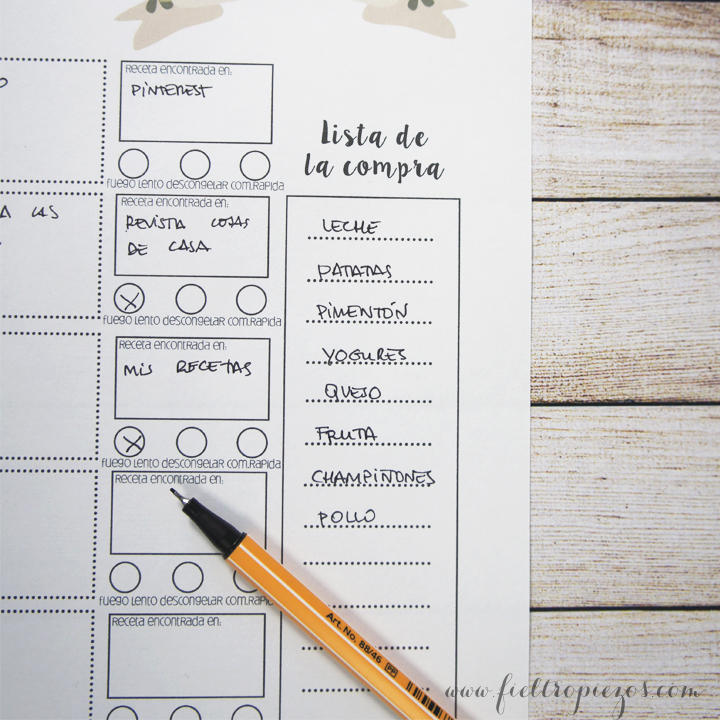 O
Receta encontrada en:
PINTEREST
Fuego lento Descongelar Com.Rapida
A LAS
Receta encontrada en:
REVISTA COSAS
DE CASA
Fuego lento Descongelar Com.Rapida
Receta encontrada en:
MIS RECETAS
Fuego lento Descongelar Com.Rapida
Receta encontrada en:
Fuego lento Descongelar Com.Rapid
Receta encontrada en:
Lista de
la compra
LECHE
PATATAS
PIMENTÓN
YOGURES
QUESO
FRUTA
CHAMPIÑONES
POLLO
Art. No. 88/46
www.fieltropiezos.com